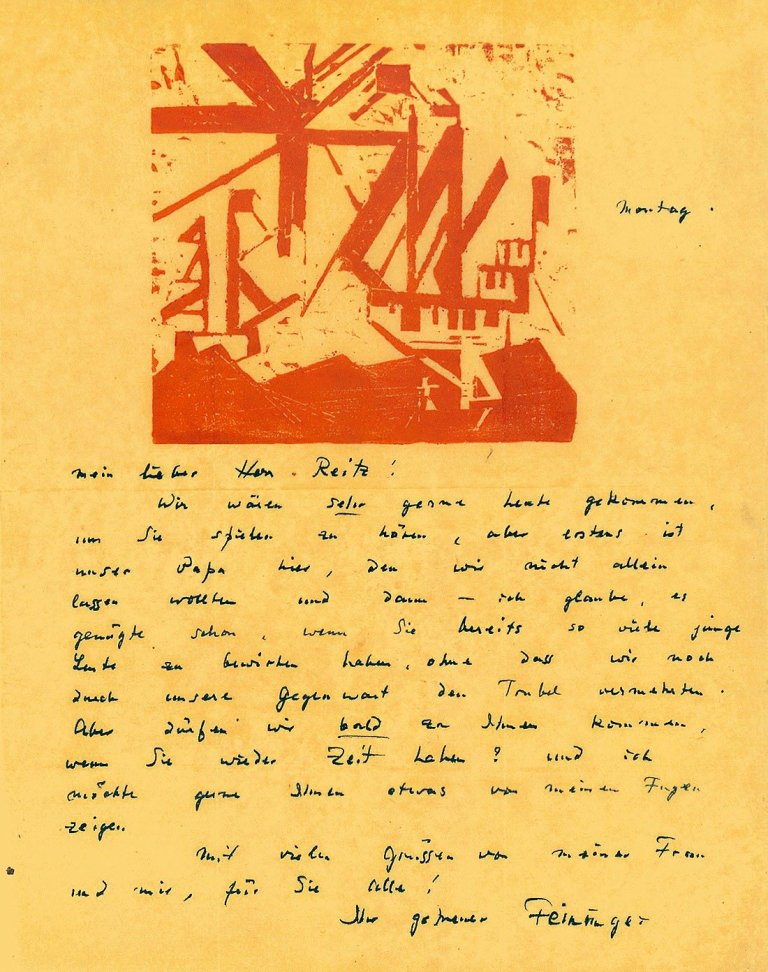 Montag.
Mein lieber Herr Reitz!
Wir wären sehr gerne heute gekommen,
um Sie spielen zu hören, aber erstens ist
unser Papa hier, den wir nicht allein
lassen wollten und dann — ich glaube, es
genügte schon, wenn Sie bereits so viele junge
Leute zu bewirten haben, ohne dass wir noch
durch unsere Gegenwart den Trubel vermehrten.
Aber dürfen wir bald zu Ihnen kommen,
wenn Sie wieder Zeit haben? und ich
möchte gerne Ihnen etwas von meinen Fugen
zeigen.
Mit vielen Grüssen von meiner Frau
und mir, für Sie alle!
Ihr getreuer Feininger